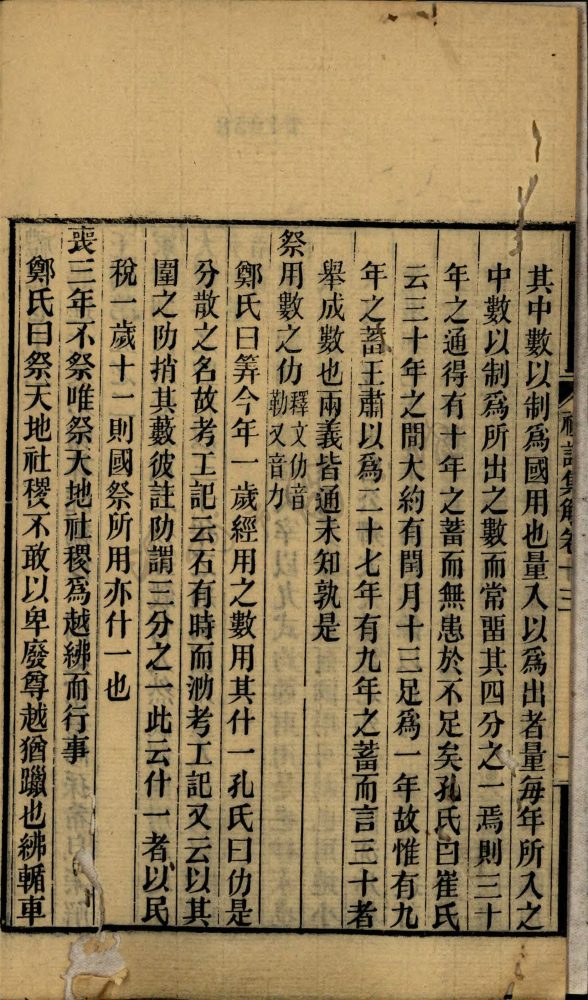 禮記集解卷十三
其中數以制爲國用也量入以爲出者量每年所入之
中數以制爲所出之數而常畱其四分之一焉則三十
年之通得有十年之蓄而無患於不足矣孔氏曰崔氏
云三十年之間大約有閏月十三足爲一年故惟有九
年之蓄王肅以爲二十七年有九年之蓄而言三十者
舉成數也兩義皆通未知孰是
祭用數之仂釋文仂音
勒又音力
鄭氏曰筭今年一歲經用之數用其什一孔氏曰仂是
分散之名故考工記云石有時而泐考工記又云以其
圍之阞捎其藪彼註阞謂三分之一此云什一者以民
稅一歲十二則國祭所用亦什一也
喪三年不祭唯祭天地社稷爲越紼而行事
鄭氏曰祭天地社稷不敢以卑廢尊越猶躐也紼輴車